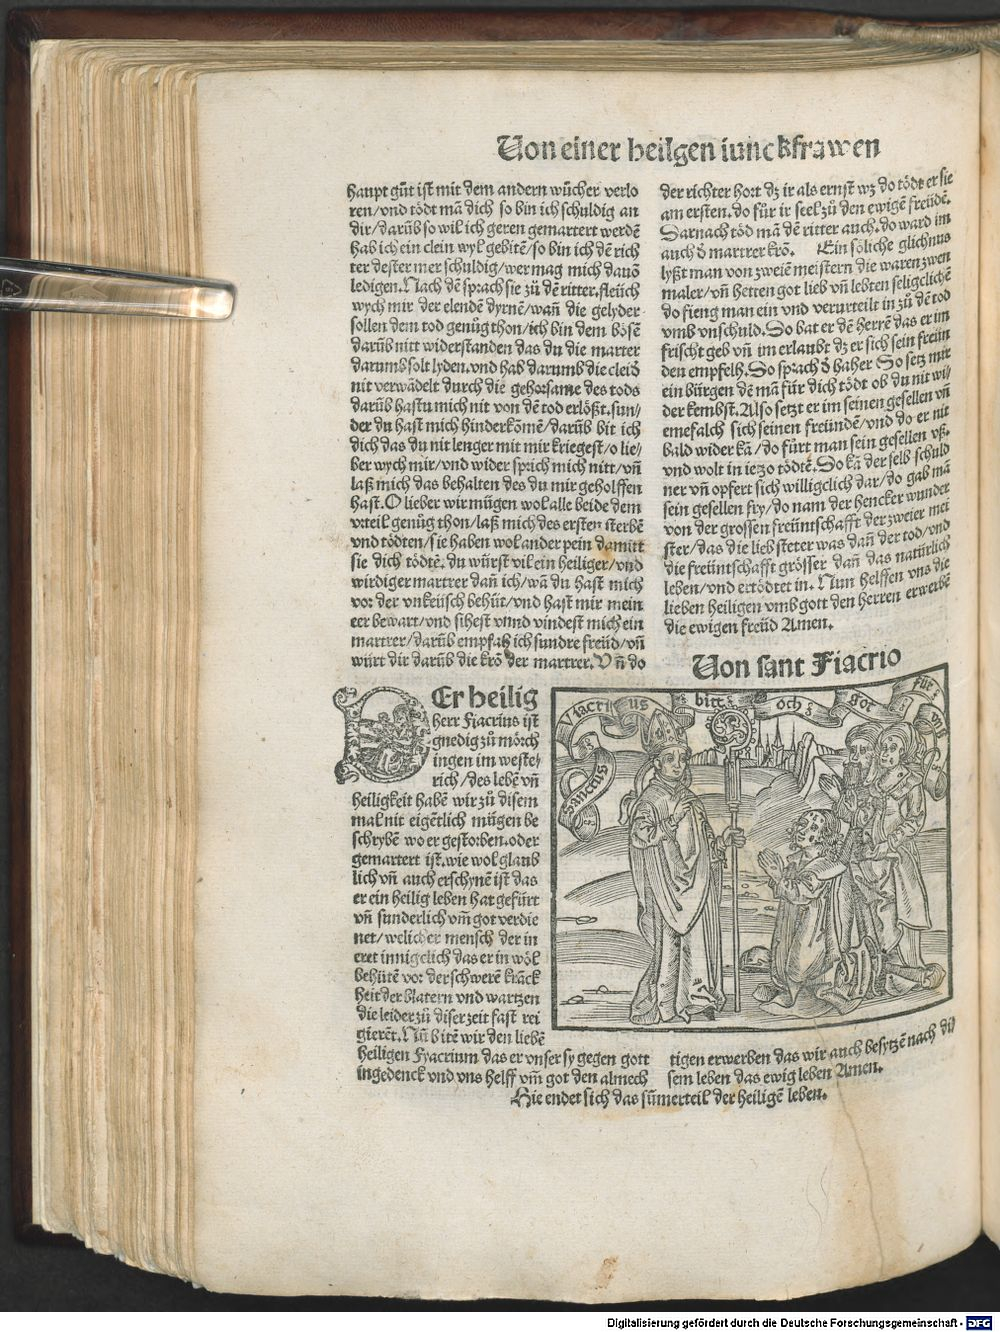 Von einer heilgen iunckfrawen
haupt gůt ist mit dem andern wůcher verlo
ren/vnd tödt mā dich so bin ich schuldig an
dir/darūb so wil ich geren gemartert werdē
hab ich ein clein wyl gebitē/so bin ich dē rich
ter dester mer schuldig/wer mag mich dauō
ledigen. Nach dē sprach sie zů dē ritter. fleüch
wych mir der elende dyrnē/wañ die gelyder
sollen dem tod genůg thon/ich bin dem bösē
darūb nitt widerstanden das du die marter
darumb solt lyden. vnd hab darumb die cleid
nit verwādelt durch die gehorsame des tods
darūb hastu mich nit von dē tod erlößt. sun/
der du hast mich hinderkōmē/darūb bit ich
dich das du nit lenger mit mir kriegest/o lie/
ber wych mir/vnd wider sprich mich nitt/vñ
laß mich das behalten des du mir geholffen
hast. O lieber wir mügen wol alle beide dem
vrteil genůg thon/laß mich des ersten sterbē
vnd tödten/sie haben wol ander pein damitt
sie dich tödtē. du würst vil ein heiliger/vnd
wirdiger martrer dañ ich/wā du hast mich
vor der vnkeüsch behüt/vnd hast mir mein
eer bewart/vnd sihest vnnd vindest mich ein
martrer/darūb empfah ich sundre freüd/vñ
würt dir darūb die krō der martrer. Vñ do
der richter hort dz ir als ernst wz do tödt er sie
am ersten. do fůr ir seel zů den ewigē freüdē.
Darnach töd mā dē ritter auch. do ward im
auch d martrer krō. Ein söliche glichnus
lyßt man von zweiē meistern die waren zwen
maler/vñ hetten got lieb vñ lebten seligclichē
do fieng man ein vnd verurteilt in zů dē tod
vmb vnschuld. So bat er dē herrē das er im
frischt geb vñ im erlaubt dz er sich sein freün
den empfelh. So sprach d haher So setz mir
ein bürgen dē mā für dich tödt ob du nit wi/
der kembst. Also setzt er im seinen gesellen vñ
emefalch sich seinen freündē/vnd do er nit
bald wider kā/do fůrt man sein gesellen vß.
vnd wolt in ietzo tödtē. So kā der selb schuld
ner vñ opfert sich willigclich dar/do gab mā
sein gesellen fry/do nam der hencker wunder
von der grossen freüntschafft der zweier mei
ster/das die lieb steter was dañ der tod/vnd
die freüntschafft grösser dañ das natürlich
leben/vnd ertödtet in. Nun helffen vns die
lieben heiligen vmb gott den herren erwerbē
die ewigen freüd Amen.
Von sant Fiacrio
Sanctus Viacrius bitt och got für vns
DEr heilig
herr Fiacrius ist
gnedig zů mörch
ingen im weste/
rich/des lebē vñ
heiligkeit habē wir zů disem
mal nit eigētlich mügen be
schrybē wo er gestorben. oder
gemartert ist. wie wol glaub
lich vñ auch erschynē ist das
er ein heilig leben hat gefürt
vñ sunderlich vm̄ got verdie
net/welicher mensch der in
eret innigclich das er in wöl
behütē vor der schwerē kräck
heit der blatern vnd wartzen
die leider zů diser zeit fast rei
gierēt. Nū bitē wir den liebē
heiligen Fyacrium das er vnser sy gegen gott
ingedenck vnd vns helff vm̄ got den almech
tigen erwerben das wir auch besytzē nach di
sem leben das ewig leben Amen.
Hie endet sich das sūmerteil der heiligē leben.
Digitalisierung gefördert durch die Deutsche Forschungsgemeinschaft - DFG